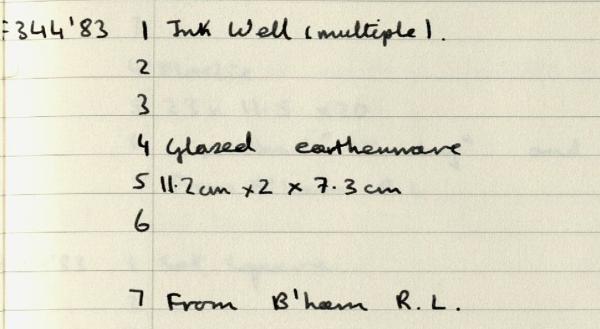 F344'83 1 Ink Well (multiple).
2
3
4 Glazed earthenware
5 11.2cm x2 x 7.3cm
6
7 From B'ham R.L.